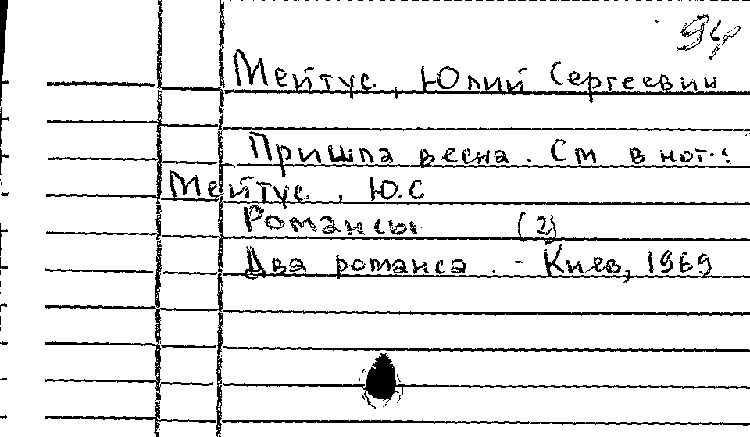 94
Мейтус, Юлий Сергеевич
Пришла весна. См в нот.:
Мейтус, Ю.С
Романсы (2)
Два романса. - Киев, 1969